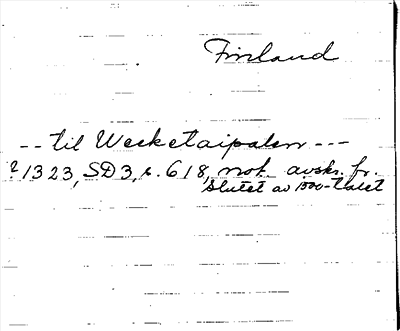 Finland
-- til Wecketaipalen ---
? 1323, SD3, s. 618, not. avskr. fr.
slutet av 1500-talet